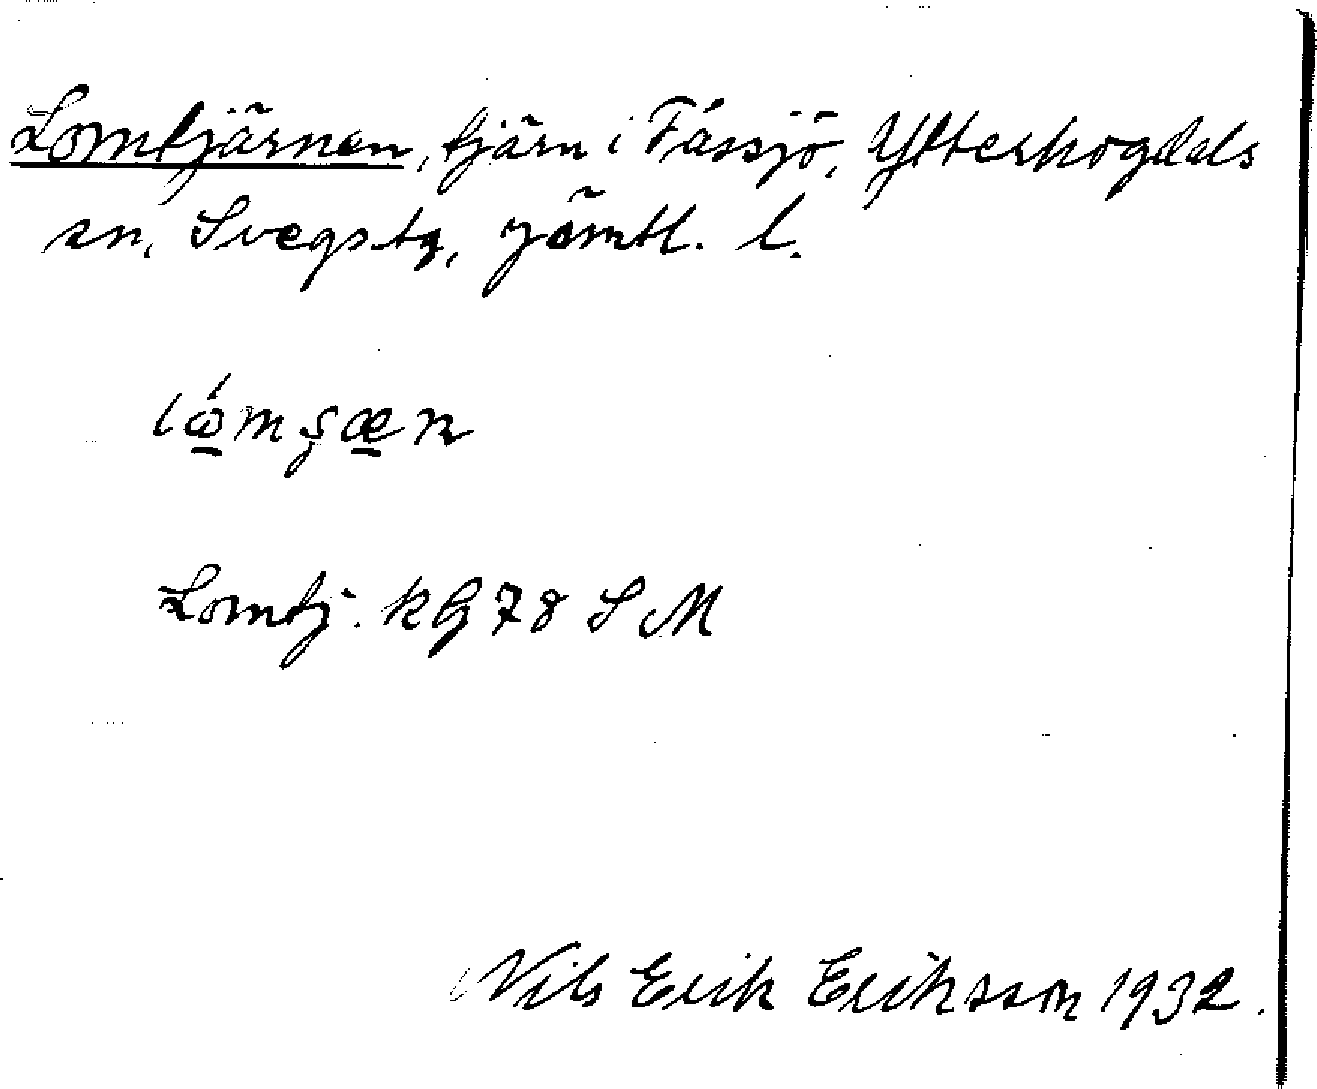 Lomtjärnen, tjärn i Fåssjö, Ytterhogdals
sn, Svegs tg, Jämtl. l.
lǿmşæn
Lomtj. k G 78 S M
Nils Erik Eriksson 1932.